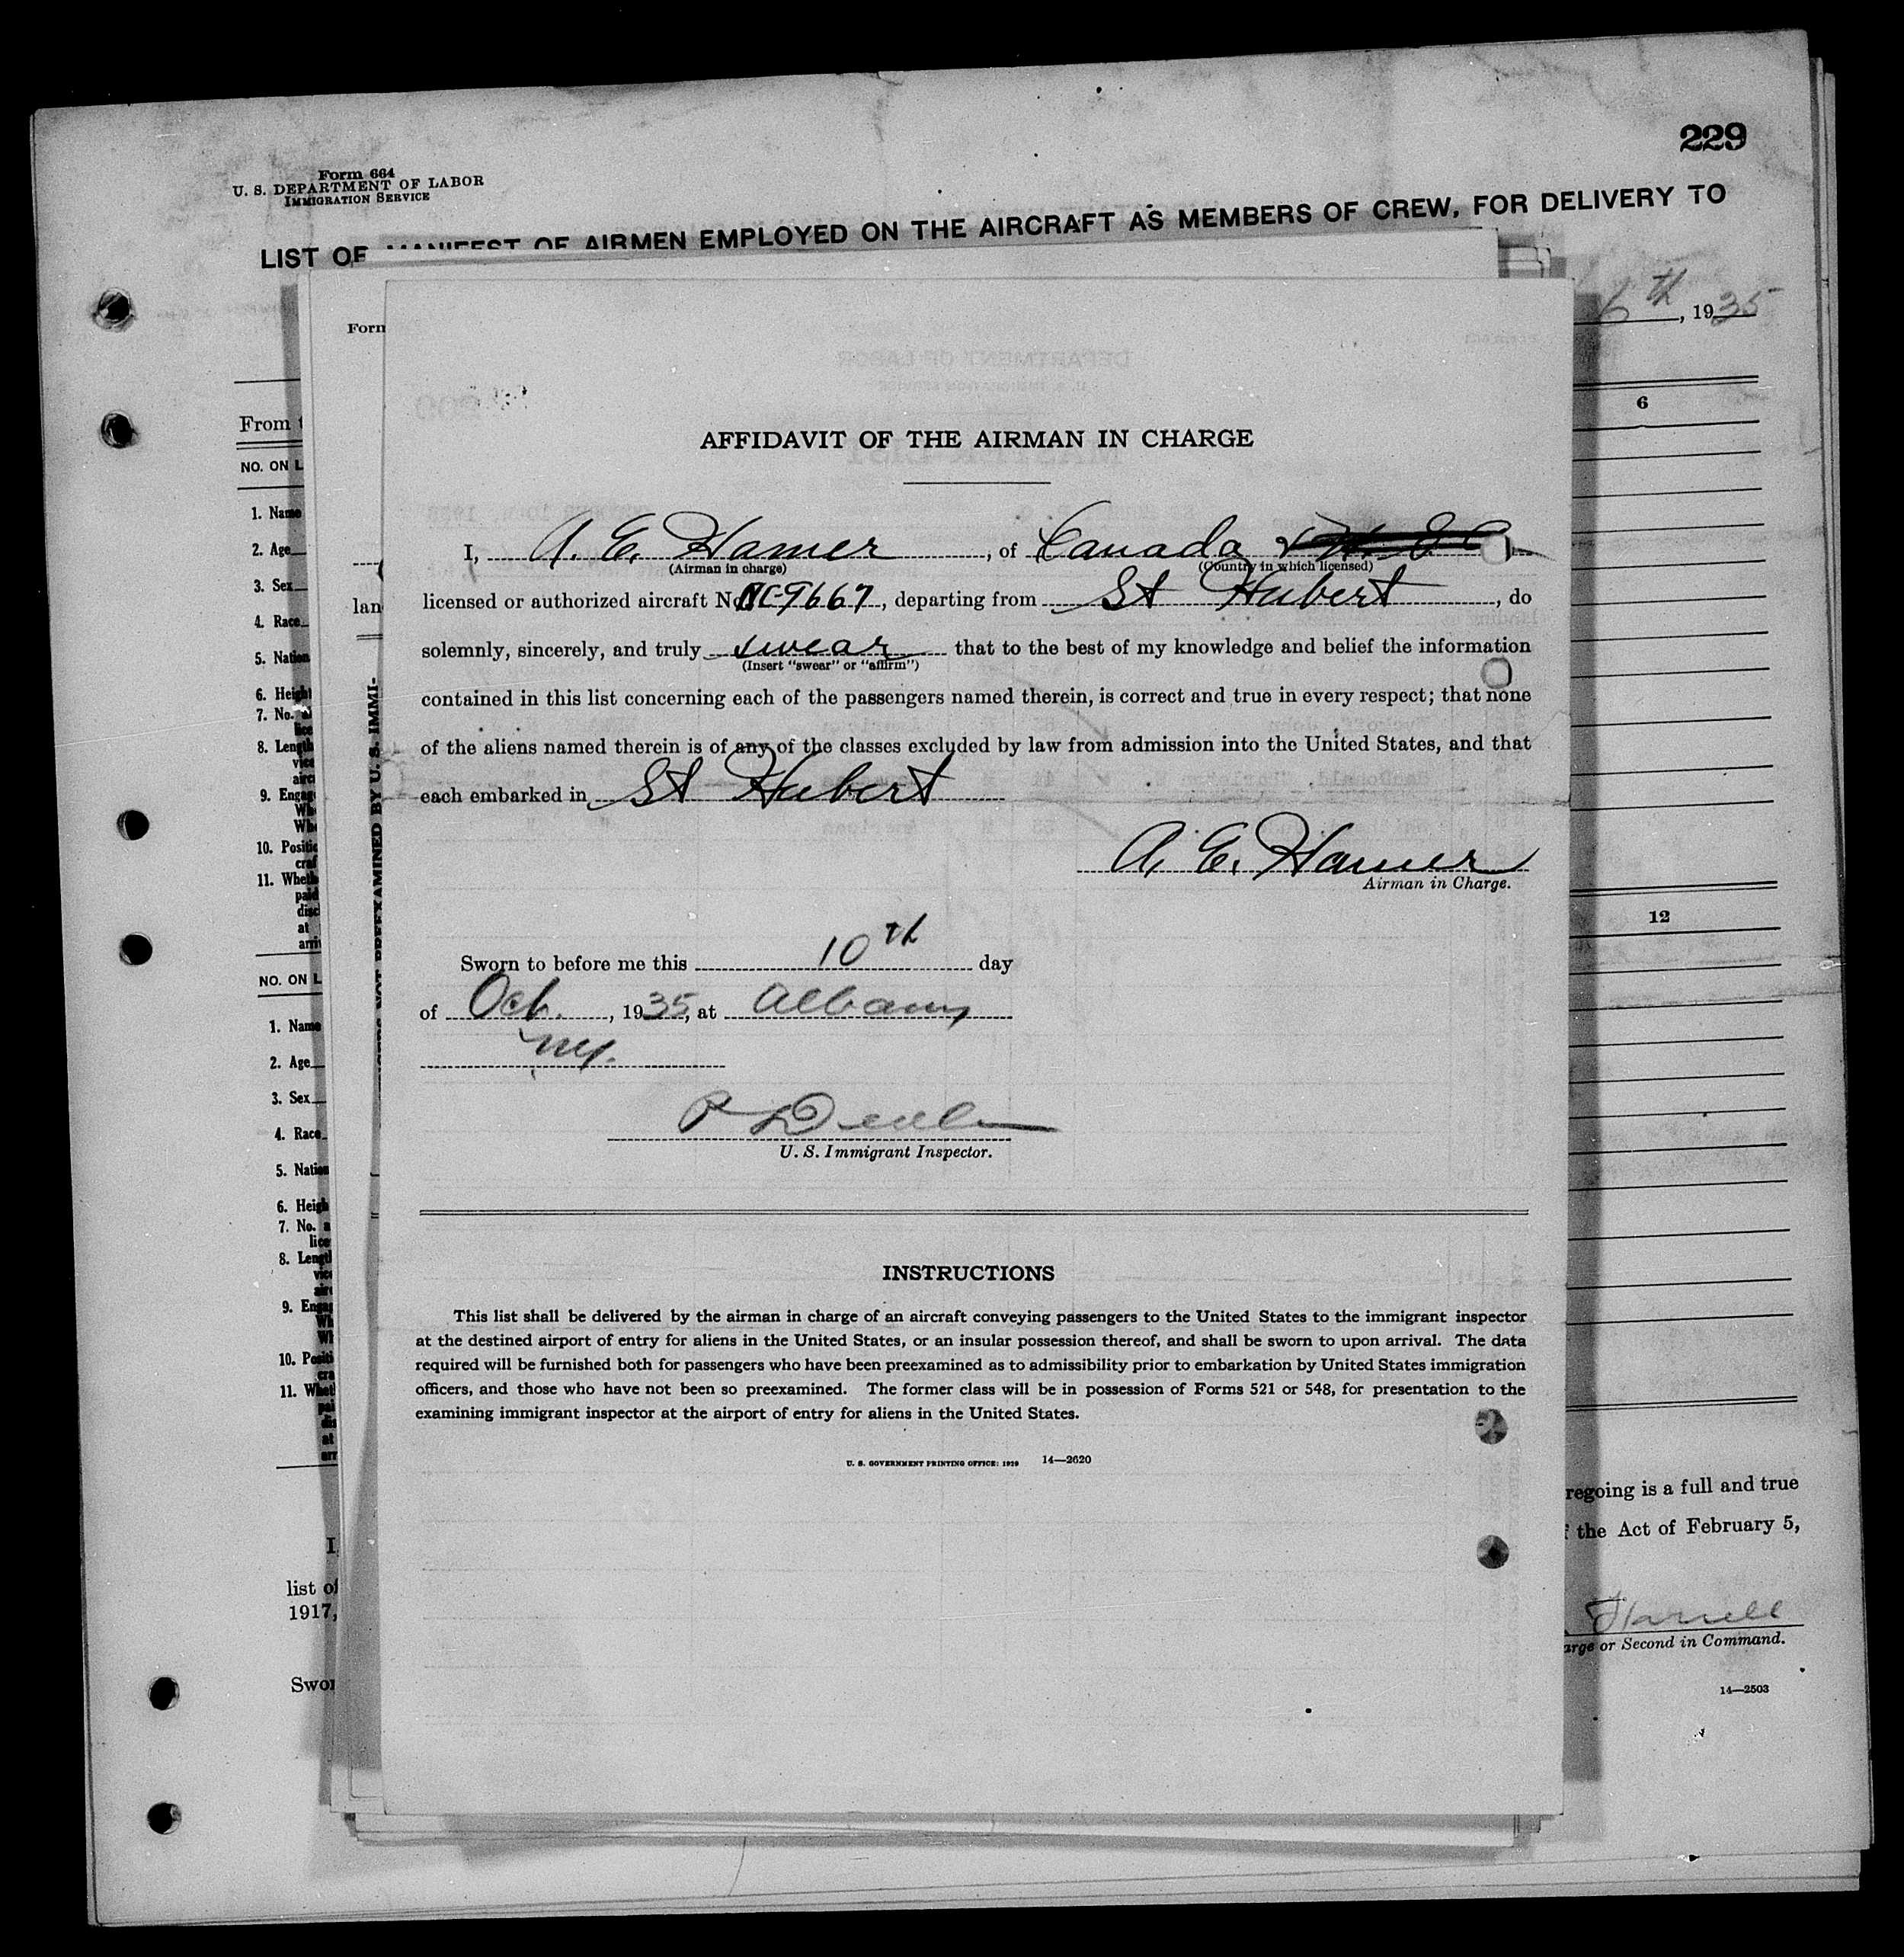 229
Form 664
U. S. DEPARTMENT OF LABOR
IMMIGRATION SERVICE
LIST OF MANIFEST OF AIRMEN EMPLOYED ON THE AIRCRAFT AS MEMBERS OF CREW, FOR DELIVERY TO
6th, 1935
Form
From
6
NO. ON L
1. Name
2. Age
3. Sex
4. Race
5. Nation
6. Height
7. No.
8. Length
9. Engag
10. Positio
11. Wheth
12
NO. ON L
1. Name
2. Age
3. Sex
4. Race
5. Nation
6. Heigh
7. No. a
8. Length
9. Engag
10. Positi
11. Whet
lan
EXAMINED BY U. S. IMMI-
AFFIDAVIT OF THE AIRMAN IN CHARGE
I, A. E. Hamer, of Canada
(Airman in charge) (Country in which licensed)
licensed or authorized aircraft No. NC-9667, departing from St Hubert, do
solemnly, sincerely, and truly swear that to the best of my knowledge and belief the information
(Insert "swear" or "affirm")
contained in this list concerning each of the passengers named therein, is correct and true in every respect; that none
of the aliens named therein is of any of the classes excluded by law from admission into the United States, and that
each embarked in St Hubert
A. E. Hamer
Airman in Charge.
Sworn to before me this 10th day
of Oct., 1935, at Albany
NY.
U. S. Immigrant Inspector.
INSTRUCTIONS
This list shall be delivered by the airman in charge of an aircraft conveying passengers to the United States to the immigrant inspector
at the destined airport of entry for aliens in the United States, or an insular possession thereof, and shall be sworn to upon arrival. The data
required will be furnished both for passengers who have been preexamined as to admissibility prior to embarkation by United States immigration
officers, and those who have not been so preexamined. The former class will be in possession of Forms 521 or 548, for presentation to the
examining immigrant inspector at the airport of entry for aliens in the United States.
U. S. GOVERNMENT PRINTING OFFICE: 1929 14—2620
regoing is a full and true
I
the Act of February 5,
list of
1917,
arge or Second in Command.
Swor
14—2503